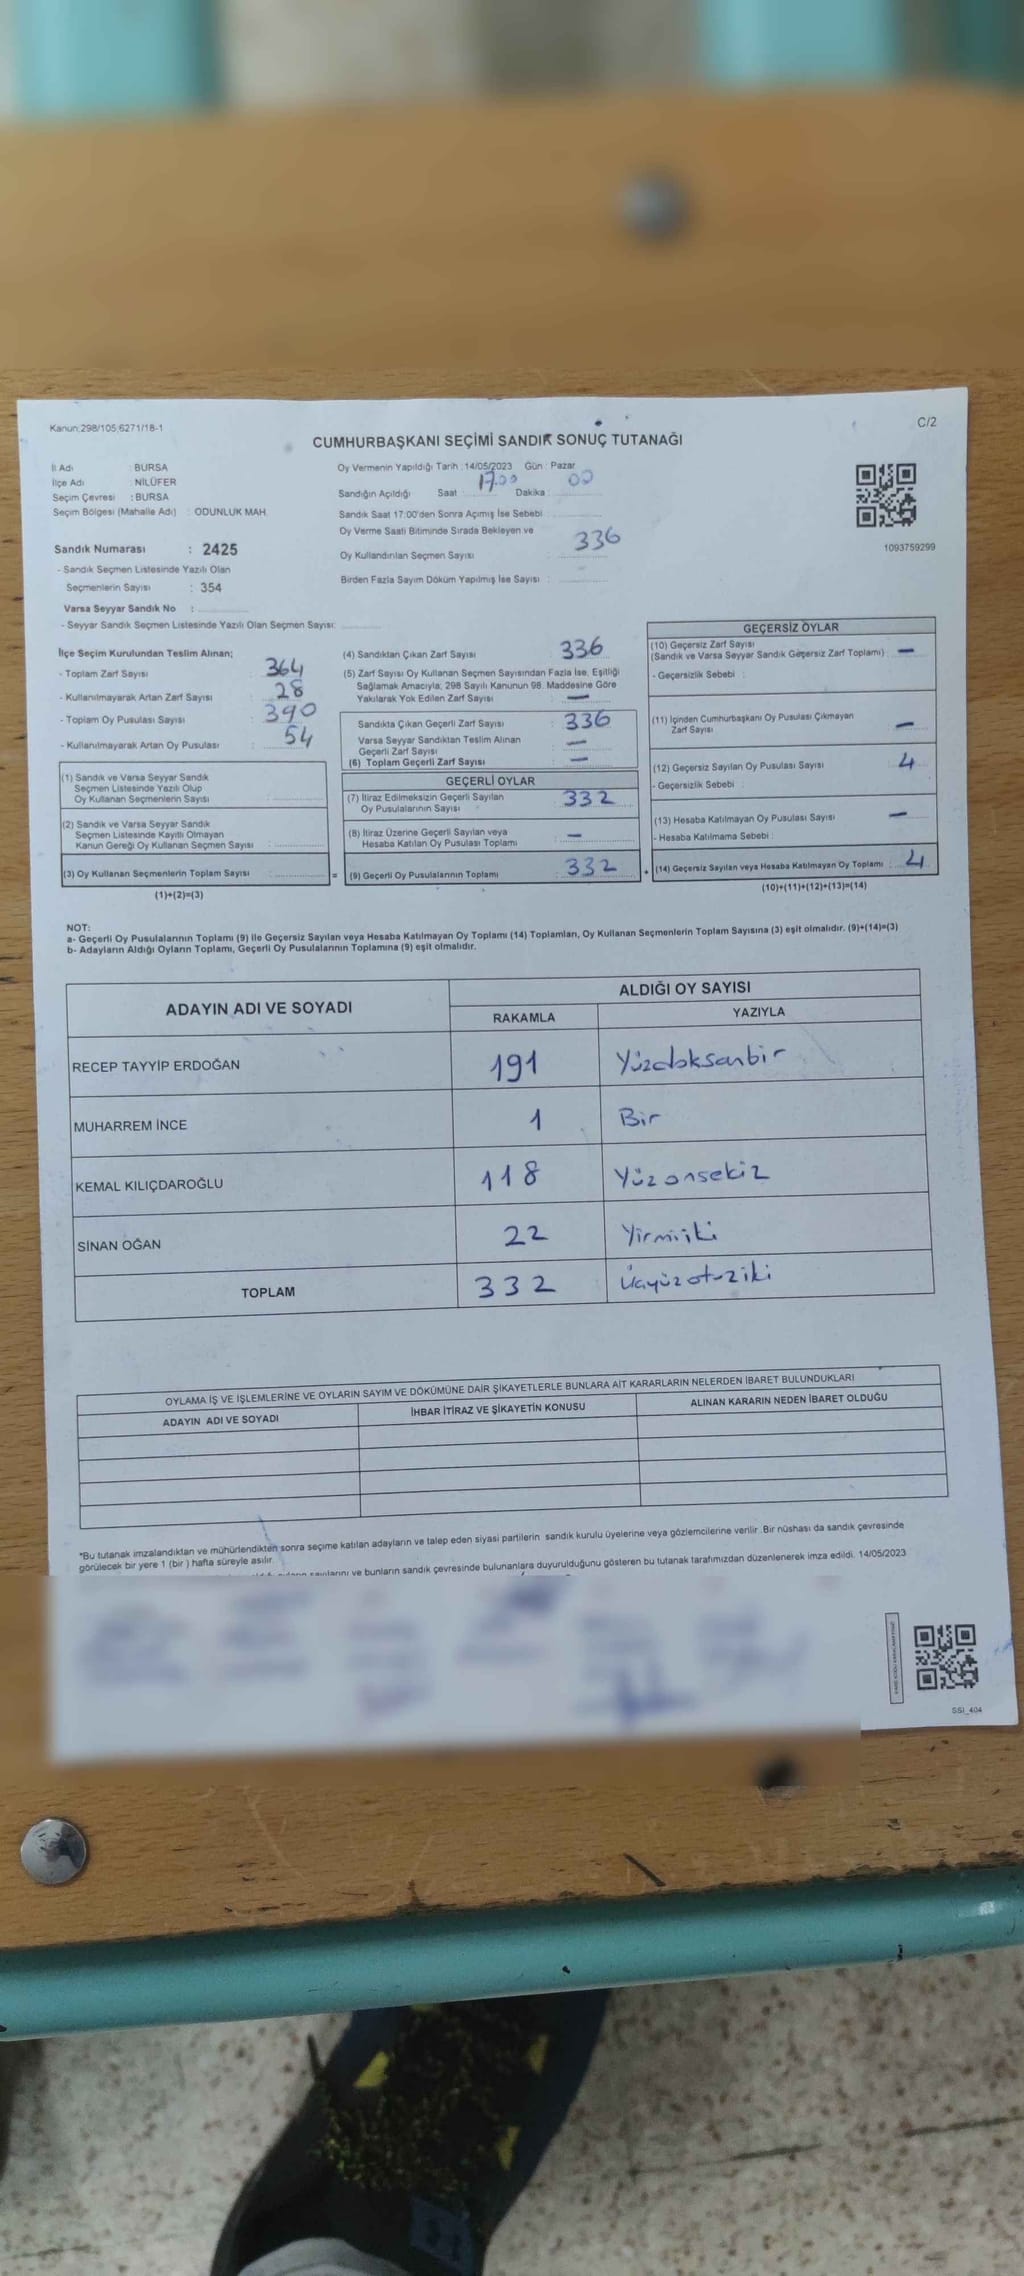 Kanun:298/105,6271/18-1
C/2
CUMHURBAŞKANI SEÇİMİ SANDIK SONUÇ TUTANAĞI
İl Adı BURSA
İlçe Adı NİLÜFER
Seçim Çevresi : BURSA
Seçim Bölgesi (Mahalle Adı) : ODUNLUK MAH.
Sandık Numarası : 2425
- Sandık Seçmen Listesinde Yazılı Olan
Seçmenlerin Sayısı : 354
Varsa Seyyar Sandık No :
- Seyyar Sandık Seçmen Listesinde Yazılı Olan Seçmen Sayısı:
Oy Vermenin Yapıldığı Tarih :14/05/2023 Gün : Pazar
Sandığın Açıldığı Saat 17.00 Dakika 00
Sandık Saat 17:00'den Sonra Açımış İse Sebebi :
Oy Verme Saati Bitiminde Sırada Bekleyen ve
Oy Kullandırılan Seçmen Sayısı : 336
Birden Fazla Sayım Döküm Yapılmış İse Sayısı :
1093759299
İlçe Seçim Kurulundan Teslim Alınan;
- Toplam Zarf Sayısı : 364
- Kullanılmayarak Artan Zarf Sayısı : 28
- Toplam Oy Pusulası Sayısı : 390
- Kullanılmayarak Artan Oy Pusulası : 54
(1) Sandık ve Varsa Seyyar Sandık
Seçmen Listesinde Yazılı Olup
Oy Kullanan Seçmenlerin Sayısı :
(2) Sandık ve Varsa Seyyar Sandık
Seçmen Listesinde Kayıtlı Olmayan
Kanun Gereği Oy Kullanan Seçmen Sayısı :
(3) Oy Kullanan Seçmenlerin Toplam Sayısı :
(1)+(2)=(3)
(4) Sandıktan Çıkan Zarf Sayısı : 336
(5) Zarf Sayısı Oy Kullanan Seçmen Sayısından Fazla İse, Eşitliği
Sağlamak Amacıyla, 298 Sayılı Kanunun 98. Maddesine Göre
Yakılarak Yok Edilen Zarf Sayısı : —
Sandıkta Çıkan Geçerli Zarf Sayısı : 336
Varsa Seyyar Sandıktan Teslim Alınan
Geçerli Zarf Sayısı : —
(6) Toplam Geçerli Zarf Sayısı : —
GEÇERLİ OYLAR
(7) İtiraz Edilmeksizin Geçerli Sayılan
Oy Pusulalarının Sayısı : 332
(8) İtiraz Üzerine Geçerli Sayılan veya
Hesaba Katılan Oy Pusulası Toplamı : —
= (9) Geçerli Oy Pusulalarının Toplamı : 332
GEÇERSİZ OYLAR
(10) Geçersiz Zarf Sayısı
(Sandık ve Varsa Seyyar Sandık Geçersiz Zarf Toplamı) : —
- Geçersizlik Sebebi :
(11) İçinden Cumhurbaşkanı Oy Pusulası Çıkmayan
Zarf Sayısı : —
(12) Geçersiz Sayılan Oy Pusulası Sayısı : 4
- Geçersizlik Sebebi :
(13) Hesaba Katılmayan Oy Pusulası Sayısı : —
- Hesaba Katılmama Sebebi :
+ (14) Geçersiz Sayılan veya Hesaba Katılmayan Oy Toplamı : 4
(10)+(11)+(12)+(13)=(14)
NOT:
a- Geçerli Oy Pusulalarının Toplamı (9) İle Geçersiz Sayılan veya Hesaba Katılmayan Oy Toplamı (14) Toplamları, Oy Kullanan Seçmenlerin Toplam Sayısına (3) eşit olmalıdır. (9)+(14)=(3)
b- Adayların Aldığı Oyların Toplamı, Geçerli Oy Pusulalarının Toplamına (9) eşit olmalıdır.
ADAYIN ADI VE SOYADI ALDIĞI OY SAYISI
RAKAMLA YAZIYLA
RECEP TAYYİP ERDOĞAN 191 Yüzdoksanbir
MUHARREM İNCE 1 Bir
KEMAL KILIÇDAROĞLU 118 Yüzonsekiz
SİNAN OĞAN 22 Yirmiiki
TOPLAM 332 Üçyüzotuziki
OYLAMA İŞ VE İŞLEMLERİNE VE OYLARIN SAYIM VE DÖKÜMÜNE DAİR ŞİKAYETLERLE BUNLARA AİT KARARLARIN NELERDEN İBARET BULUNDUKLARI
ADAYIN ADI VE SOYADI İHBAR İTİRAZ VE ŞİKAYETİN KONUSU ALINAN KARARIN NEDEN İBARET OLDUĞU
*Bu tutanak imzalandıktan ve mühürlendikten sonra seçime katılan adayların ve talep eden siyasi partilerin sandık kurulu üyelerine veya gözlemcilerine verilir .Bir nüshası da sandık çevresinde
görülecek bir yere 1 (bir ) hafta süreyle asılır.
sayılarını ve bunların sandık çevresinde bulunanlara duyurulduğunu gösteren bu tutanak tarafımızdan düzenlenerek imza edildi. 14/05/2023
SSI_404